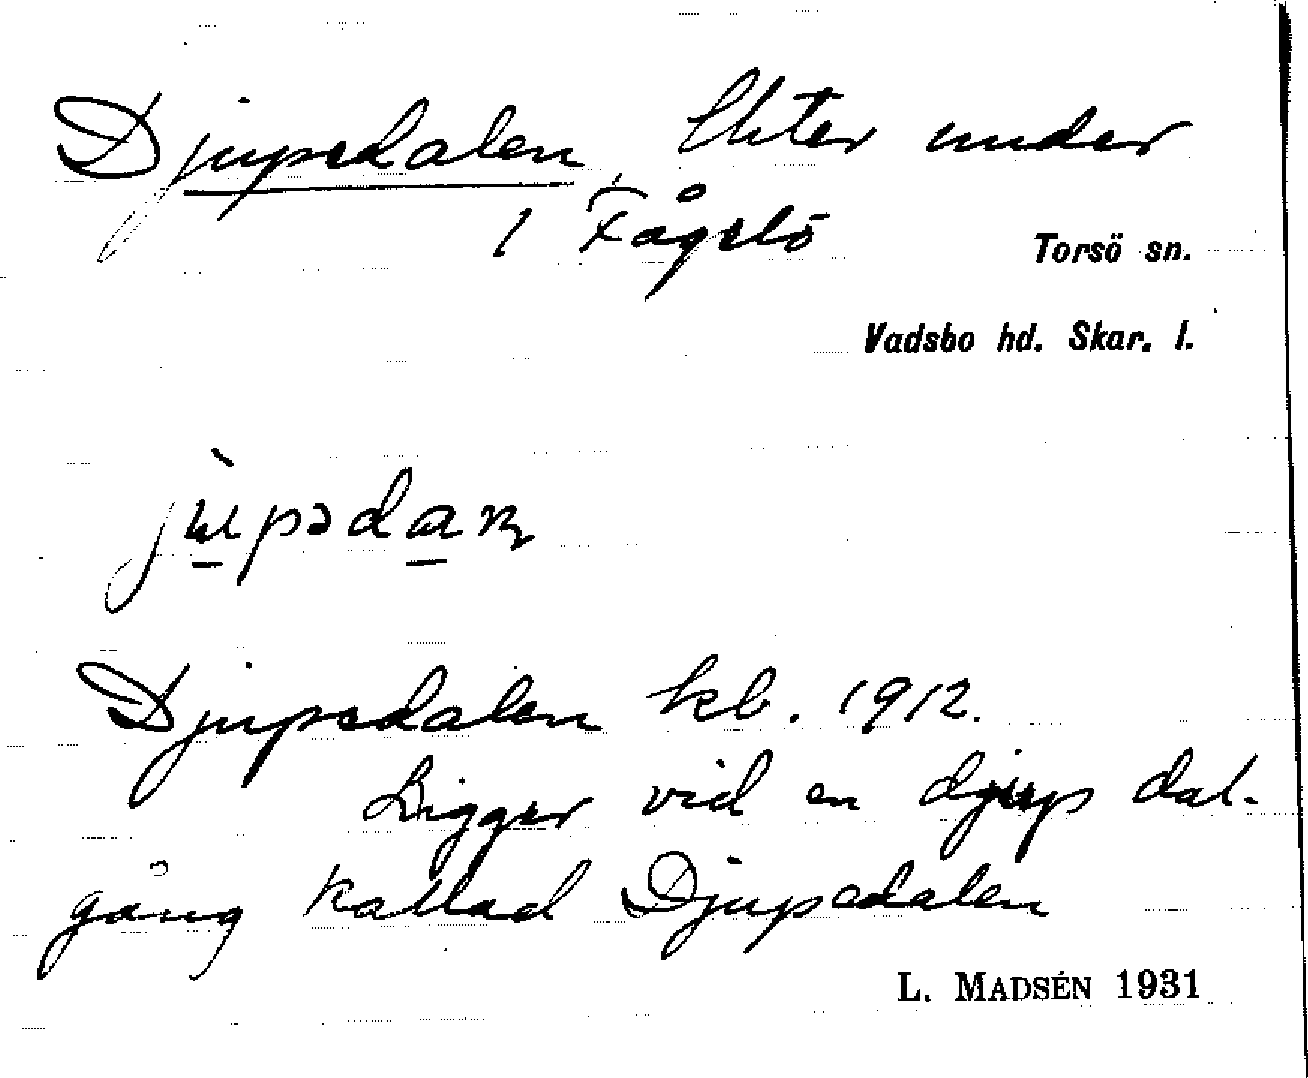 Djupedalen, lht er under
1 Fågelö
Torsö sn.
Vadsbo hd. Skar. l.
jùpədaɳ
Djupedalen kb. 1912.
Ligger vid en djup dal-
gång kallad Djupedalen
L. MADSÉN 1931